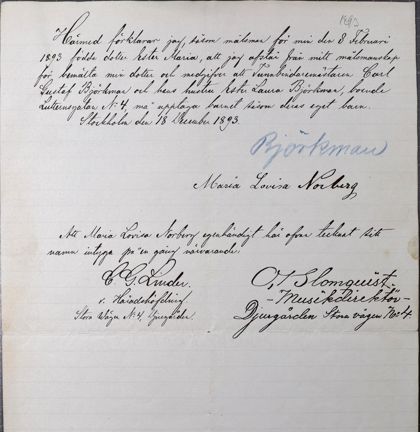 1893
Härmed förklarar jag, såsom målsman för min den 8 Februari
1893 födde dotter Ester Maria, att jag afstår från mitt målsmanskap
för bemälta min dotter och medgifver att Tunnbindaremästaren Carl
Gustaf Björkman och hans hustru Ester Laura Björkman, boende
Luternsgatan No 4, må upptaga barnet såsom deras eget barn.
Stockholm den 18 December 1893.
Björkman
Maria Lovisa Norberg
Att Maria Lovisa Norberg egenhändigt här ofvan tecknat sitt
namn intyga på en gång närvarande:
C. G. Linder
v. Häradshöfding
Stora Vägen No 4, Djurgården
O. Blomquist
- Musikdirektör -
Djurgården Stora vägen No 4